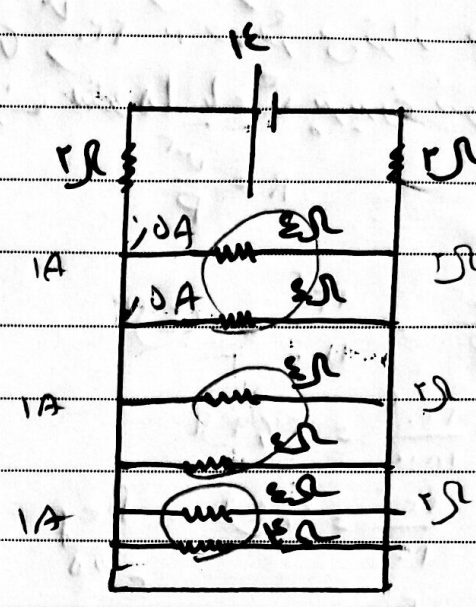 ١٤
٢Ω ٢Ω
٫٥A ٤Ω
١A ٢Ω
٫٥A ٤Ω
٤Ω
١A ٢Ω
٤Ω
٤Ω
١A ٢Ω
٤Ω